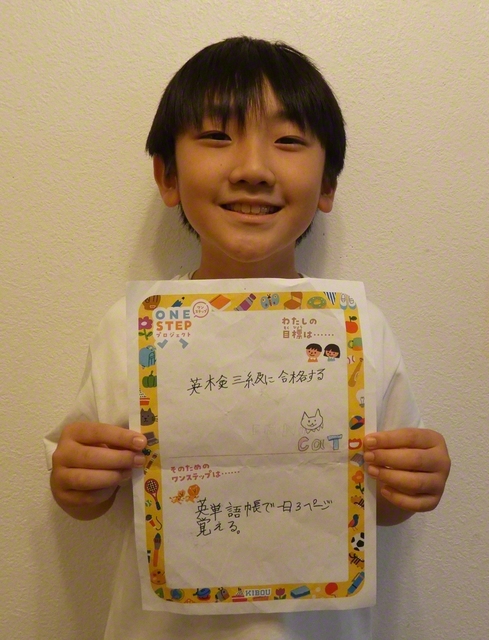 ONE
STEP
プロジェクト
ワンステップ
わたしの
もくひょう
目標は……
英検三級に合格する
CaT
そのための
ワンステップは……
英単語帳で一日3ページ
覚える。
KIBOU